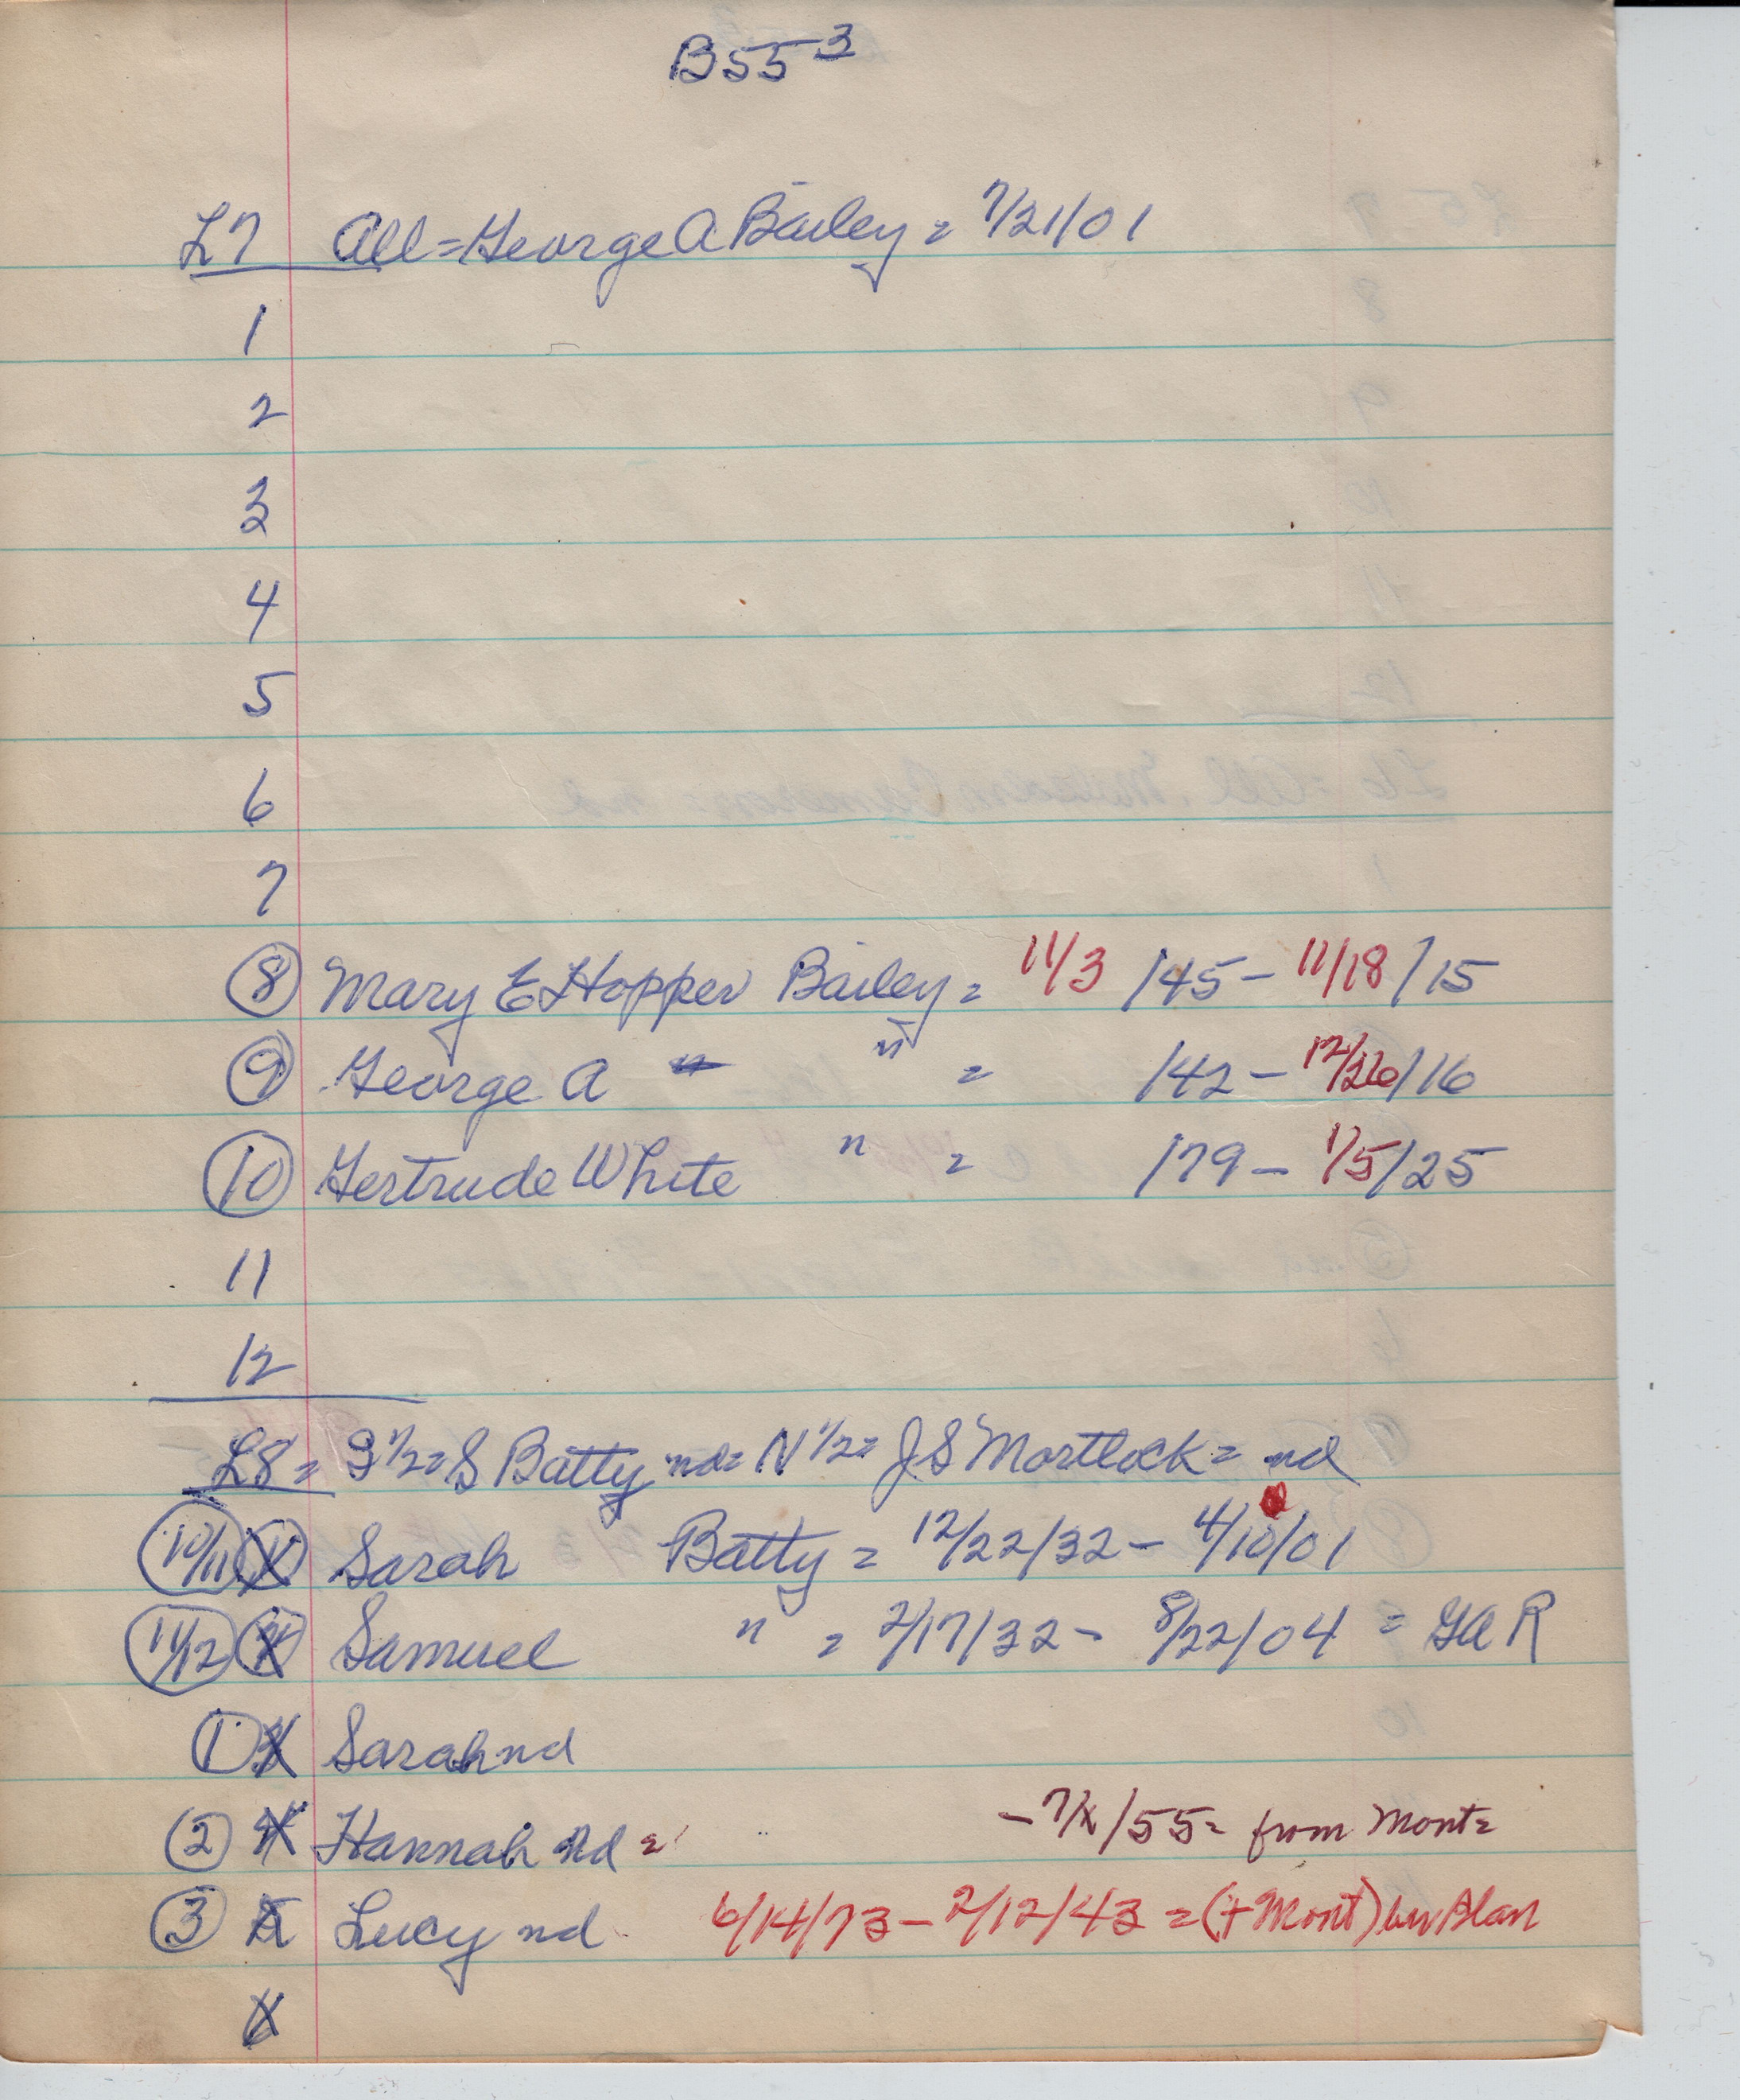 B55 3
L7 All = George A Bailey = 7/21/01
1
2
3
4
5
6
7
8 Mary E Hopper Bailey = 11/3 /45 - 11/18/15
9 George A " = /42 - 12/26/16
10 Gertrude White " = /79 - 1/5/25
11
12
L8 = S 1/2 = S Batty nd = N 1/2 = J S Mortlock = nd
10/11 Sarah Batty = 12/22/32 - 4/10/01
11/12 Samuel " = 2/17/32 - 8/22/04 = GAR
1 Sarah nd
2 Hannah nd = - 7/x/55 = from Mont =
3 Lucy nd 6/14/73 - 2/12/43 = (+ Mont)